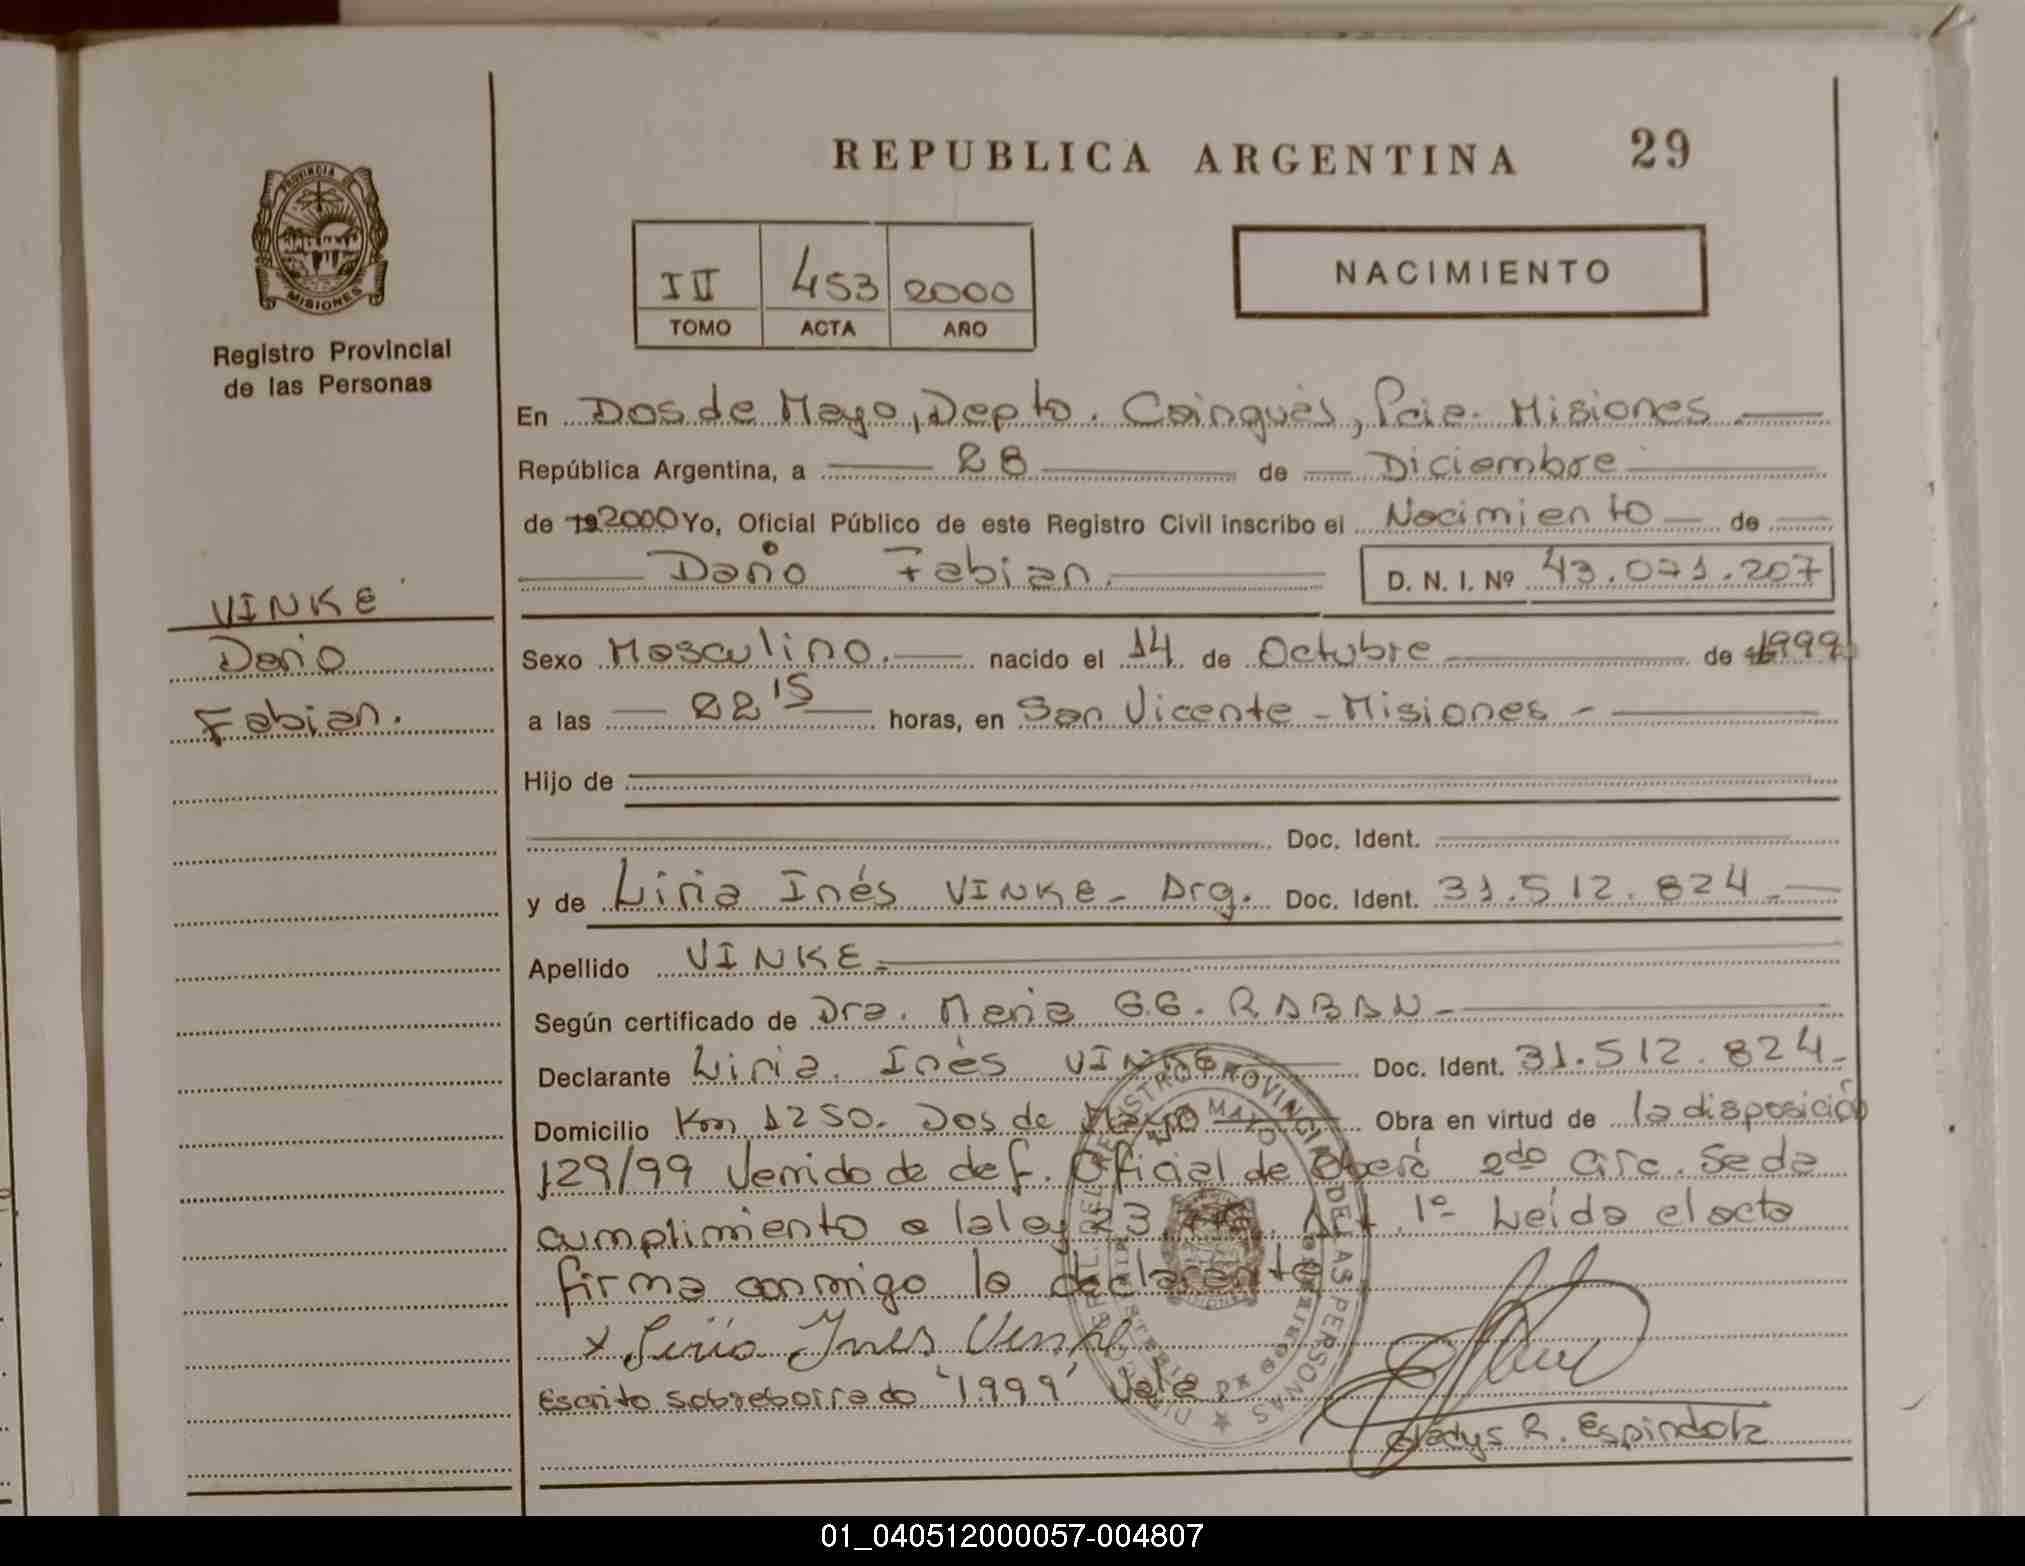 REPUBLICA ARGENTINA 29
PROVINCIA DE
MISIONES
Registro Provincial
de las Personas
II 453 2000
TOMO ACTA AÑO
NACIMIENTO
En Dos de Mayo, Depto. Cainguás, Pcia. Misiones
República Argentina, a 28 de Diciembre
de 19 2000 Yo, Oficial Público de este Registro Civil inscribo el Nacimiento de
Dario Fabian. D. N. I. Nº 43.071.207
VINKE
Dario
Fabian.
Sexo Masculino. nacido el 14 de Octubre de 1999
a las 22 15 horas, en San Vicente - Misiones -
Hijo de
Doc. Ident.
y de Liria Inés VINKE - Arg. Doc. Ident. 31.512.824.-
Apellido VINKE.
Según certificado de Dra. Maria G.G. RABAN -
Declarante Liria Inés VINKE Doc. Ident. 31.512.824.-
Domicilio Km 1250. Dos de Mayo Obra en virtud de la disposición
129/99 Venido de def. Oficial de Oberá 2do Circ. Se da
cumplimiento a la ley 23. Art. 1º Leída el acta
firma conmigo la declarante
x Liria Ines Vinke
Escrito sobreborrado "1999" Vale
Gladys R. Espindola
REGISTRO PROVINCIAL DE LAS PERSONAS
MAYO
01_040512000057-004807